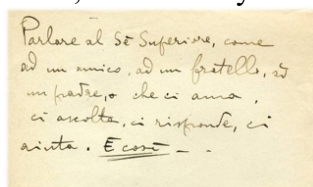 Parlare al Sè Superiore, come
ad un amico, ad un fratello, ad
un padre, o che ci ama,
ci ascolta, ci risponde, ci
aiuta. E così - -